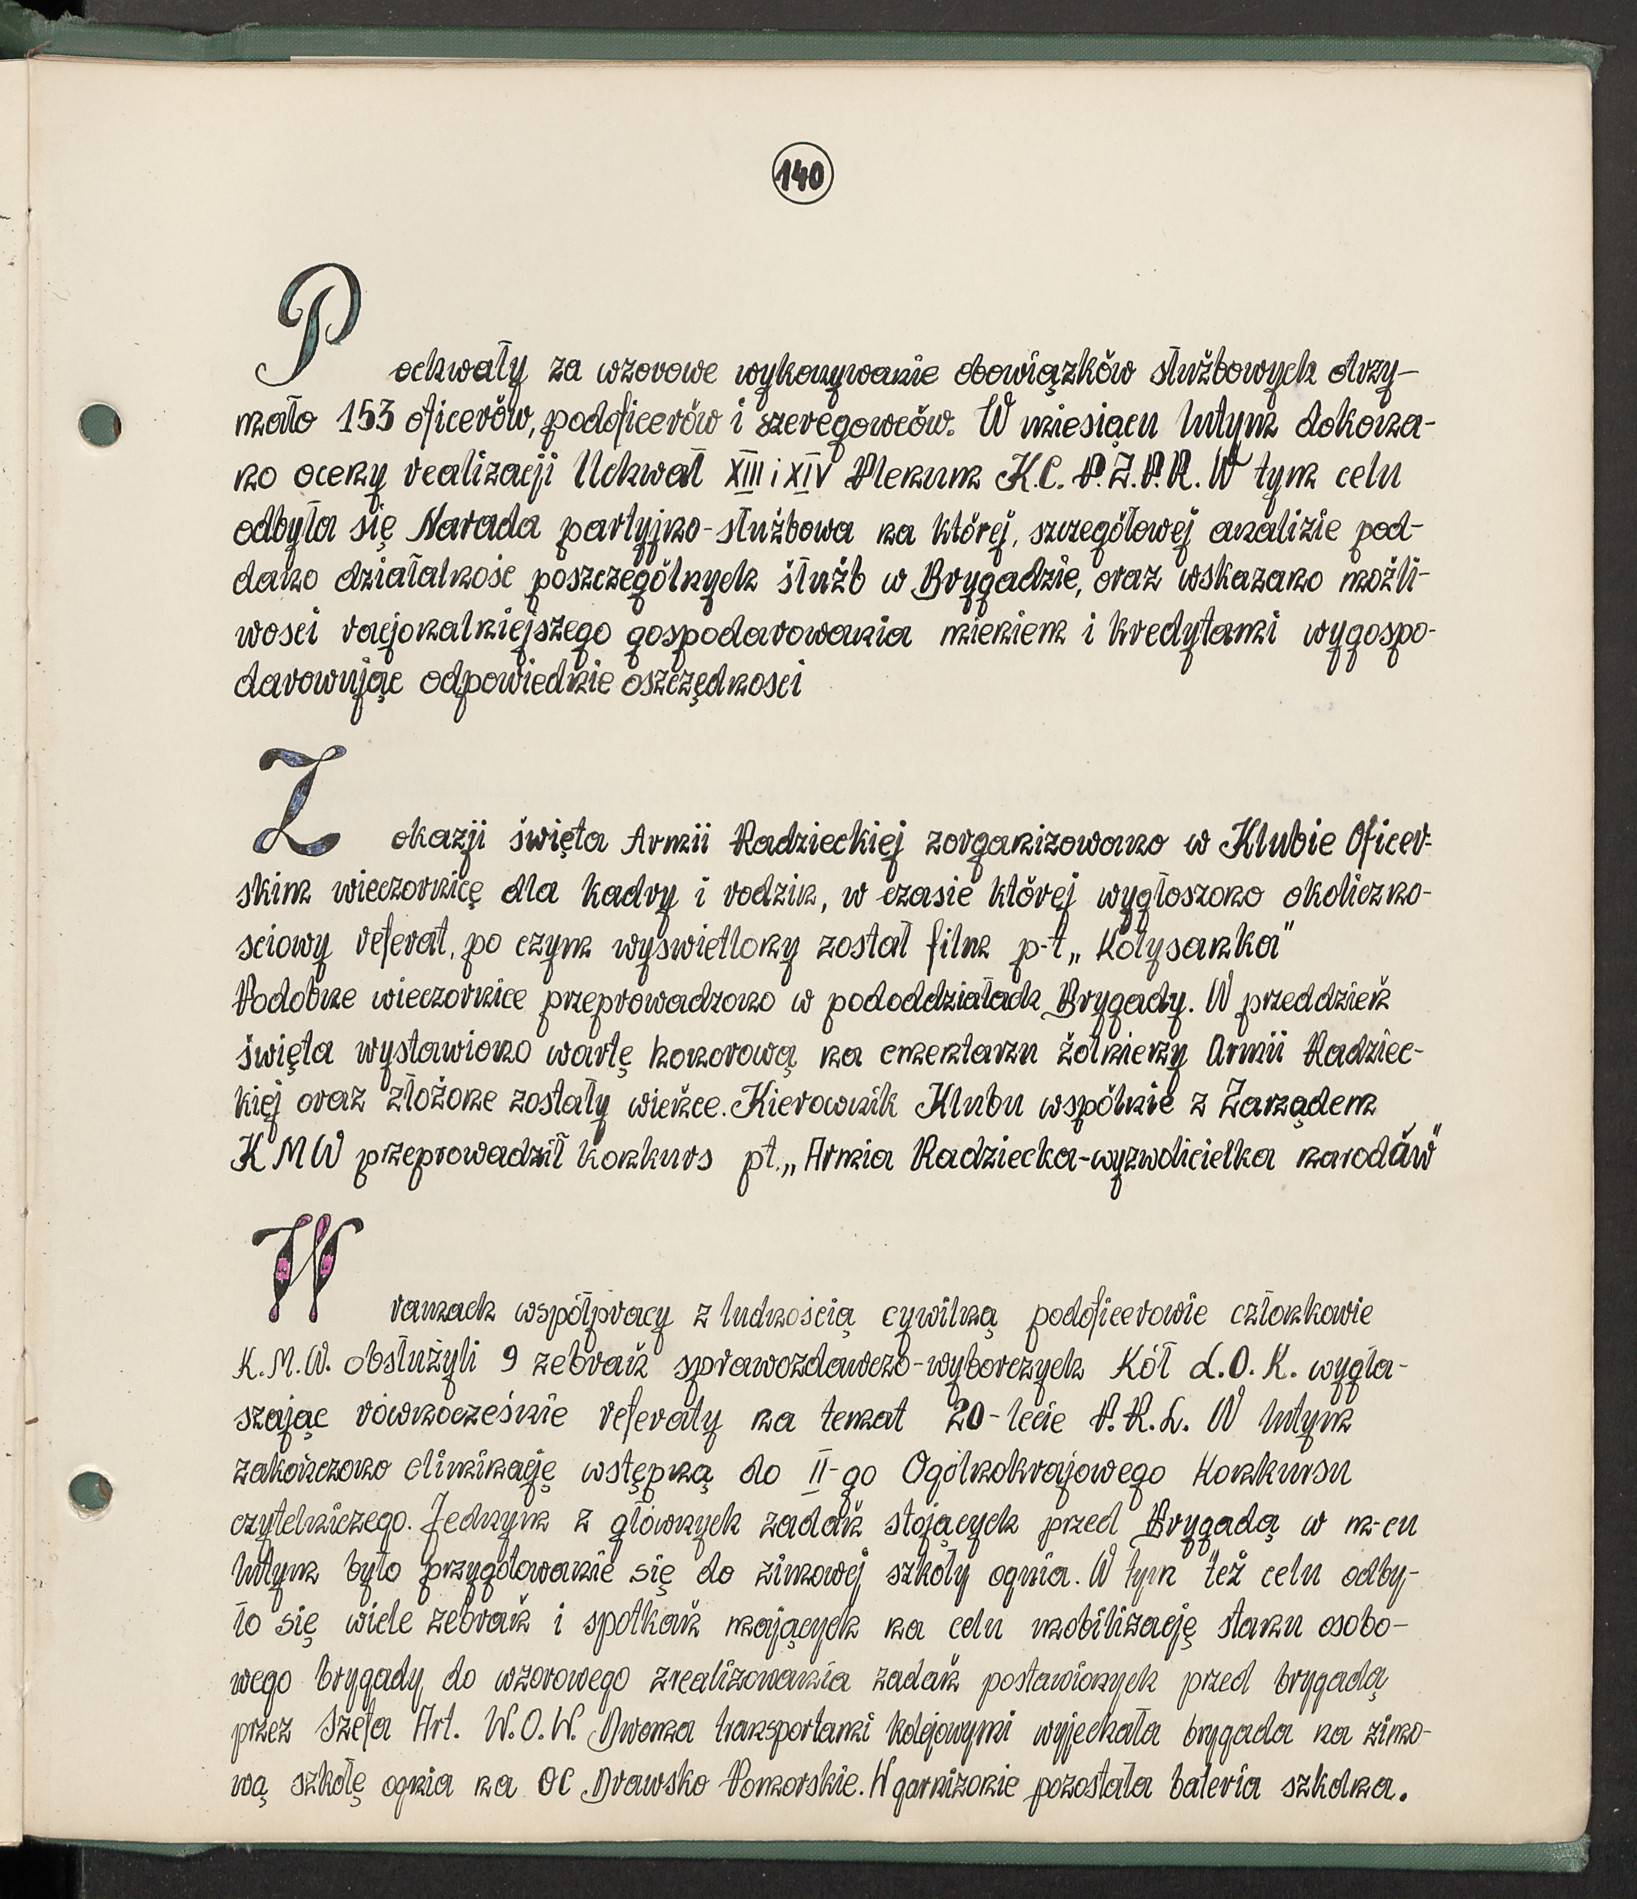 140
Pochwały za wzorowe wykonywanie obowiązków służbowych otrzy-
mało 153 oficerów, podoficerów i szeregowców. W miesiącu lutym dokona-
no oceny realizacji Uchwał XIII i XIV Plenum K.C. P.Z.P.R. W tym celu
odbyła się Narada partyjno-służbowa na której, szczegółowej analizie pod-
dano działalnośc poszczególnych służb w Brygadzie, oraz wskazano możli-
wosci racjonalniejszego gospodarowania mieniem i kredytami wygospo-
darowując odpowiednie oszczędnosci
Z okazji święta Armii Radzieckiej zorganizowano w Klubie Oficer-
skim wieczornicę dla kadry i rodzin, w czasie której wygłoszono okoliczno-
sciowy referat, po czym wyswietlony został film p-t „Kołysanka"
Podobne wieczornice przeprowadzono w pododdziałach Brygady. W przeddzień
święta wystawiono wartę honorową na cmentarzu żołnierzy Armii Radziec-
kiej oraz złożone zostały wieńce. Kierownik Klubu wspólnie z Zarządem
KMW przeprowadził konkurs pt. „Armia Radziecka-wyzwolicielka narodów"
W ramach współpracy z ludnością cywilną podoficerowie członkowie
K.M.W. obsłużyli 9 zebrań sprawozdawczo-wyborczych Kół L.O.K. wygła-
szając równocześnie referaty na temat 20-lecie P.R.L. W lutym
zakończono eliminację wstępną do II-go Ogólnokrajowego Konkursu
czytelniczego. Jednym z głównych zadań stojących przed Brygadą w m-cu
lutym było przygotowanie się do zimowej szkoły ognia. W tym też celu odby-
ło się wiele zebrań i spotkań mających na celu mobilizację stanu osobo-
wego brygady do wzorowego zrealizowania zadań postawionych przed brygadą
przez Szefa Art. W.O.W. Dwoma transportami kolejowymi wyjechała brygada na zimo-
wą szkołę ognia na OC Drawsko Pomorskie. W garnizonie pozostała bateria szkolna.